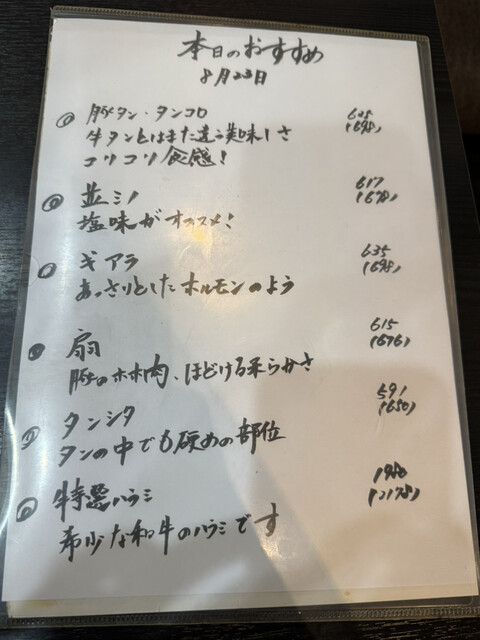 本日のおすすめ
8月23日
豚タン・タンコロ 635
(698)
牛タンとはまた違う美味しさ
コリコリ食感!
並ミノ 617
(678)
塩味がオススメ!
ギアラ 635
(698)
あっさりとしたホルモンのよう
扇 615
(676)
豚のホホ肉、ほどける柔らかさ
タンシタ 591
(650)
タンの中でも硬めの部位
特選ハラミ 1980
(2178)
希少な和牛のハラミです